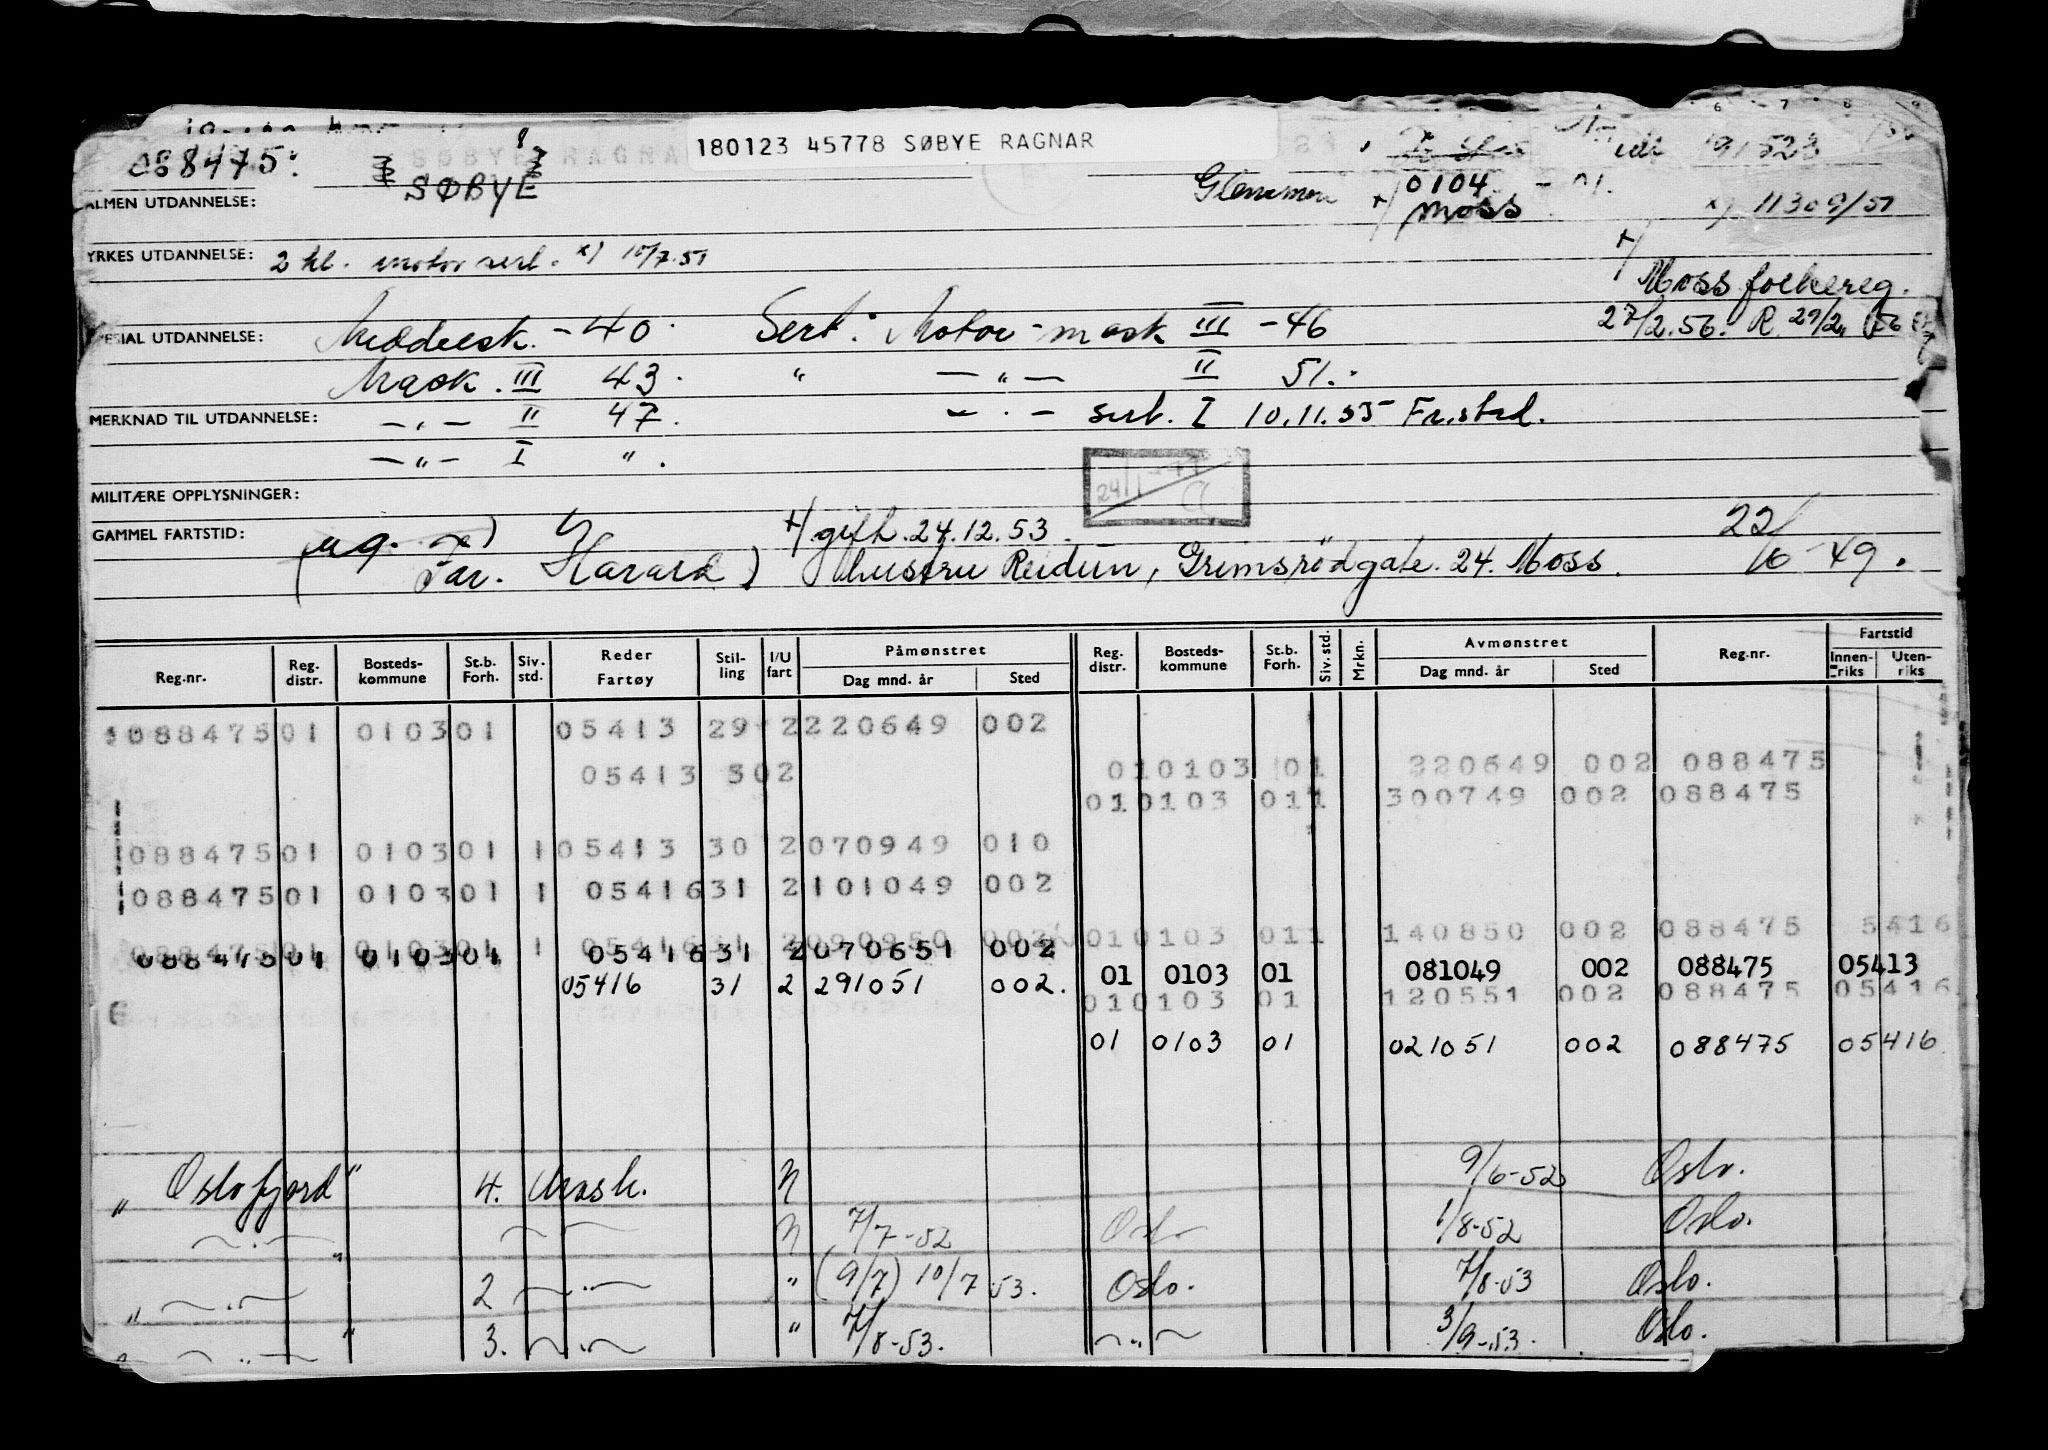 180123 45778 SØBYE RAGNAR
088475
SØBYE
Glemmen
0104
+) Moss
x) 11309/51
ALMEN UTDANNELSE:
YRKES UTDANNELSE: 2 kl. motor sert. x) 10/7.51
+) Moss folkereg.
27/2.56. R 29/2
SPESIAL UTDANNELSE: Middelsk. - 40. Sert: Motor-mask III - 46
Mask. III 43. " — " — II 51.
MERKNAD TIL UTDANNELSE: — " — II 47. — " — sert. I 10.11.55 Fr.stad.
— " — I ".
MILITÆRE OPPLYSNINGER:
GAMMEL FARTSTID: (ug. x) +) gift. 24.12.53.
Far. Harald) hustru Reidun, Grimsrødgate. 24. Moss. 22/6-49.
Reg.nr. Reg. distr. Bosteds-kommune St.b. Forh. Siv. std. Reder Fartøy Stil-ling I/U fart Påmønstret Dag mnd. år Sted Reg. distr. Bosteds-kommune St.b. Forh. Siv. std. Mrkn. Avmønstret Dag mnd. år Sted Reg.nr. Fartstid Innen-riks Uten-riks
088475 01 0103 01 05413 29 2 220649 002
05413 30 2 01 0103 01 220649 002 088475
01 0103 01 1 300749 002 088475
088475 01 0103 01 1 05413 30 2 070949 010
088475 01 0103 01 1 05416 31 2 101049 002
088475 01 0103 01 1 05416 31 2 090950 002 01 0103 01 1 140850 002 088475 5416
088475 01 0103 01 05416 31 2 070651 002
05416 31 2 291051 002. 01 0103 01 081049 002 088475 05413
01 0103 01 120551 002 088475 05416
01 0103 01 021051 002 088475 05416
"Oslofjord" 4. Mask. U 9/6-52 Oslo.
— " — — " — U 7/7-52 Oslo 1/8-52 Oslo.
" — " — " 2 — " — " (9/7) 10/7.53. Oslo. 7/8-53 Oslo.
— " — " 3. — " — " 7/8-53. — " — 3/9-53. Oslo.